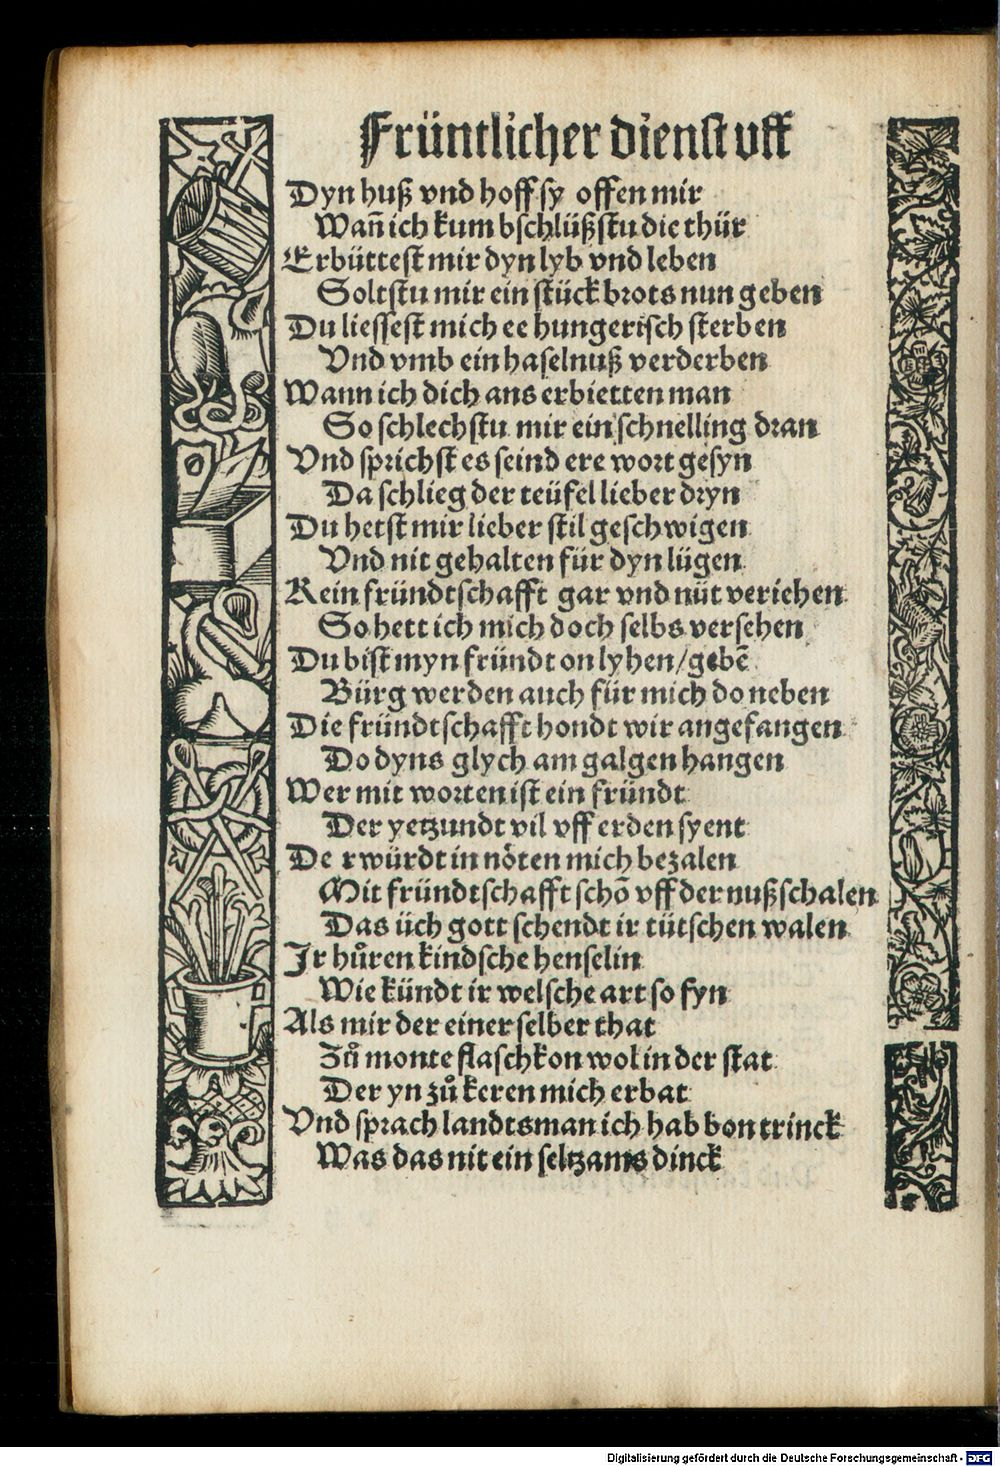 Früntlicher dienst vff
Dyn huß vnd hoff sy offen mir
Wañ ich kum bschlüßstu die thür
Erbüttest mir dyn lyb vnd leben
Soltstu mir ein stück brots nun geben
Du liessest mich ee hungerisch sterben
Vnd vmb ein haselnuß verderben
Wann ich dich ans erbietten man
So schlechstu mir ein schnelling dran
Vnd sprichst es seind ere wort gesyn
Da schlieg der teüfel lieber dryn
Du hetst mir lieber stil geschwigen
Vnd nit gehalten für dyn lügen
Kein fründtschafft gar vnd nüt veriehen
So hett ich mich doch selbs versehen
Du bist myn fründt on lyhen/gebē
Bürg werden auch für mich do neben
Die fründtschafft hondt wir angefangen
Do dyns glych am galgen hangen
Wer mit worten ist ein fründt
Der yetzundt vil vff erden syent
De r würdt in nöten mich bezalen
Mit fründtschafft schō vff der nußschalen
Das üch gott schendt ir tütschen walen
Ir hůren kindsche henselin
Wie kündt ir welsche art so fyn
Als mir der einer selber that
Zů monte flaschkon wol in der stat
Der yn zů keren mich erbat
Vnd sprach landtsman ich hab bon trinck
Was das nit ein seltzams dinck
Digitalisierung gefördert durch die Deutsche Forschungsgemeinschaft - DFG